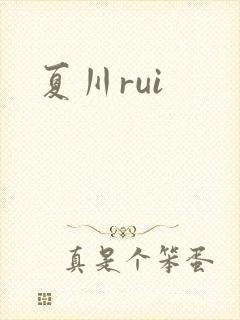 夏川rui
真是个笨蛋